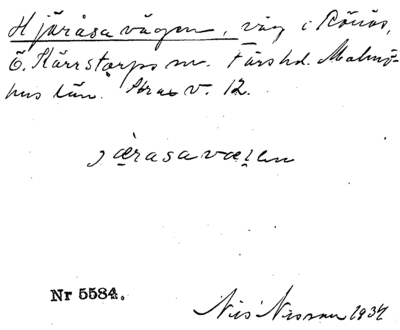 Hjäråsavägen, väg i Rönås,
Ö. Kärrstorps sn. Färs hd. Malmö-
hus län. v. 12.
järasavæłen
Nr 5584.
Nils Nilsson 1934